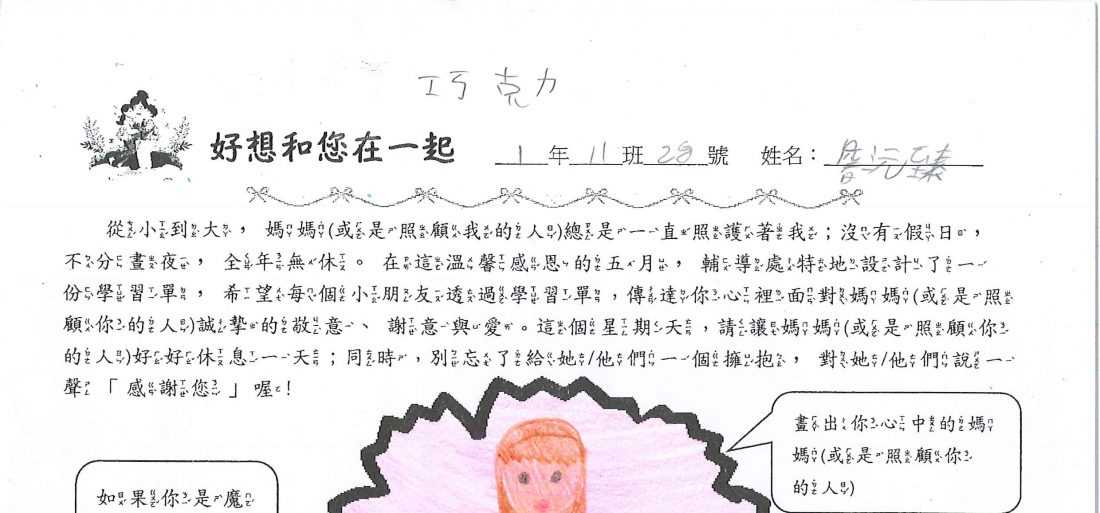 巧克力
好想和您在一起 1年11班28號 姓名：詹沅臻
從小到大，媽媽(或是照顧我的人)總是一直照護著我；沒有假日，
不分晝夜，全年無休。在這溫馨感恩的五月，輔導處特地設計了一
份學習單，希望每個小朋友透過學習單，傳達你心裡面對媽媽(或是照
顧你的人)誠摯的敬意、謝意與愛。這個星期天，請讓媽媽(或是照顧你
的人)好好休息一天；同時，別忘了給她/他們一個擁抱，對她/他們說一
聲「感謝您」喔!
畫出你心中的媽
媽(或是照顧你
的人)
如果你是魔